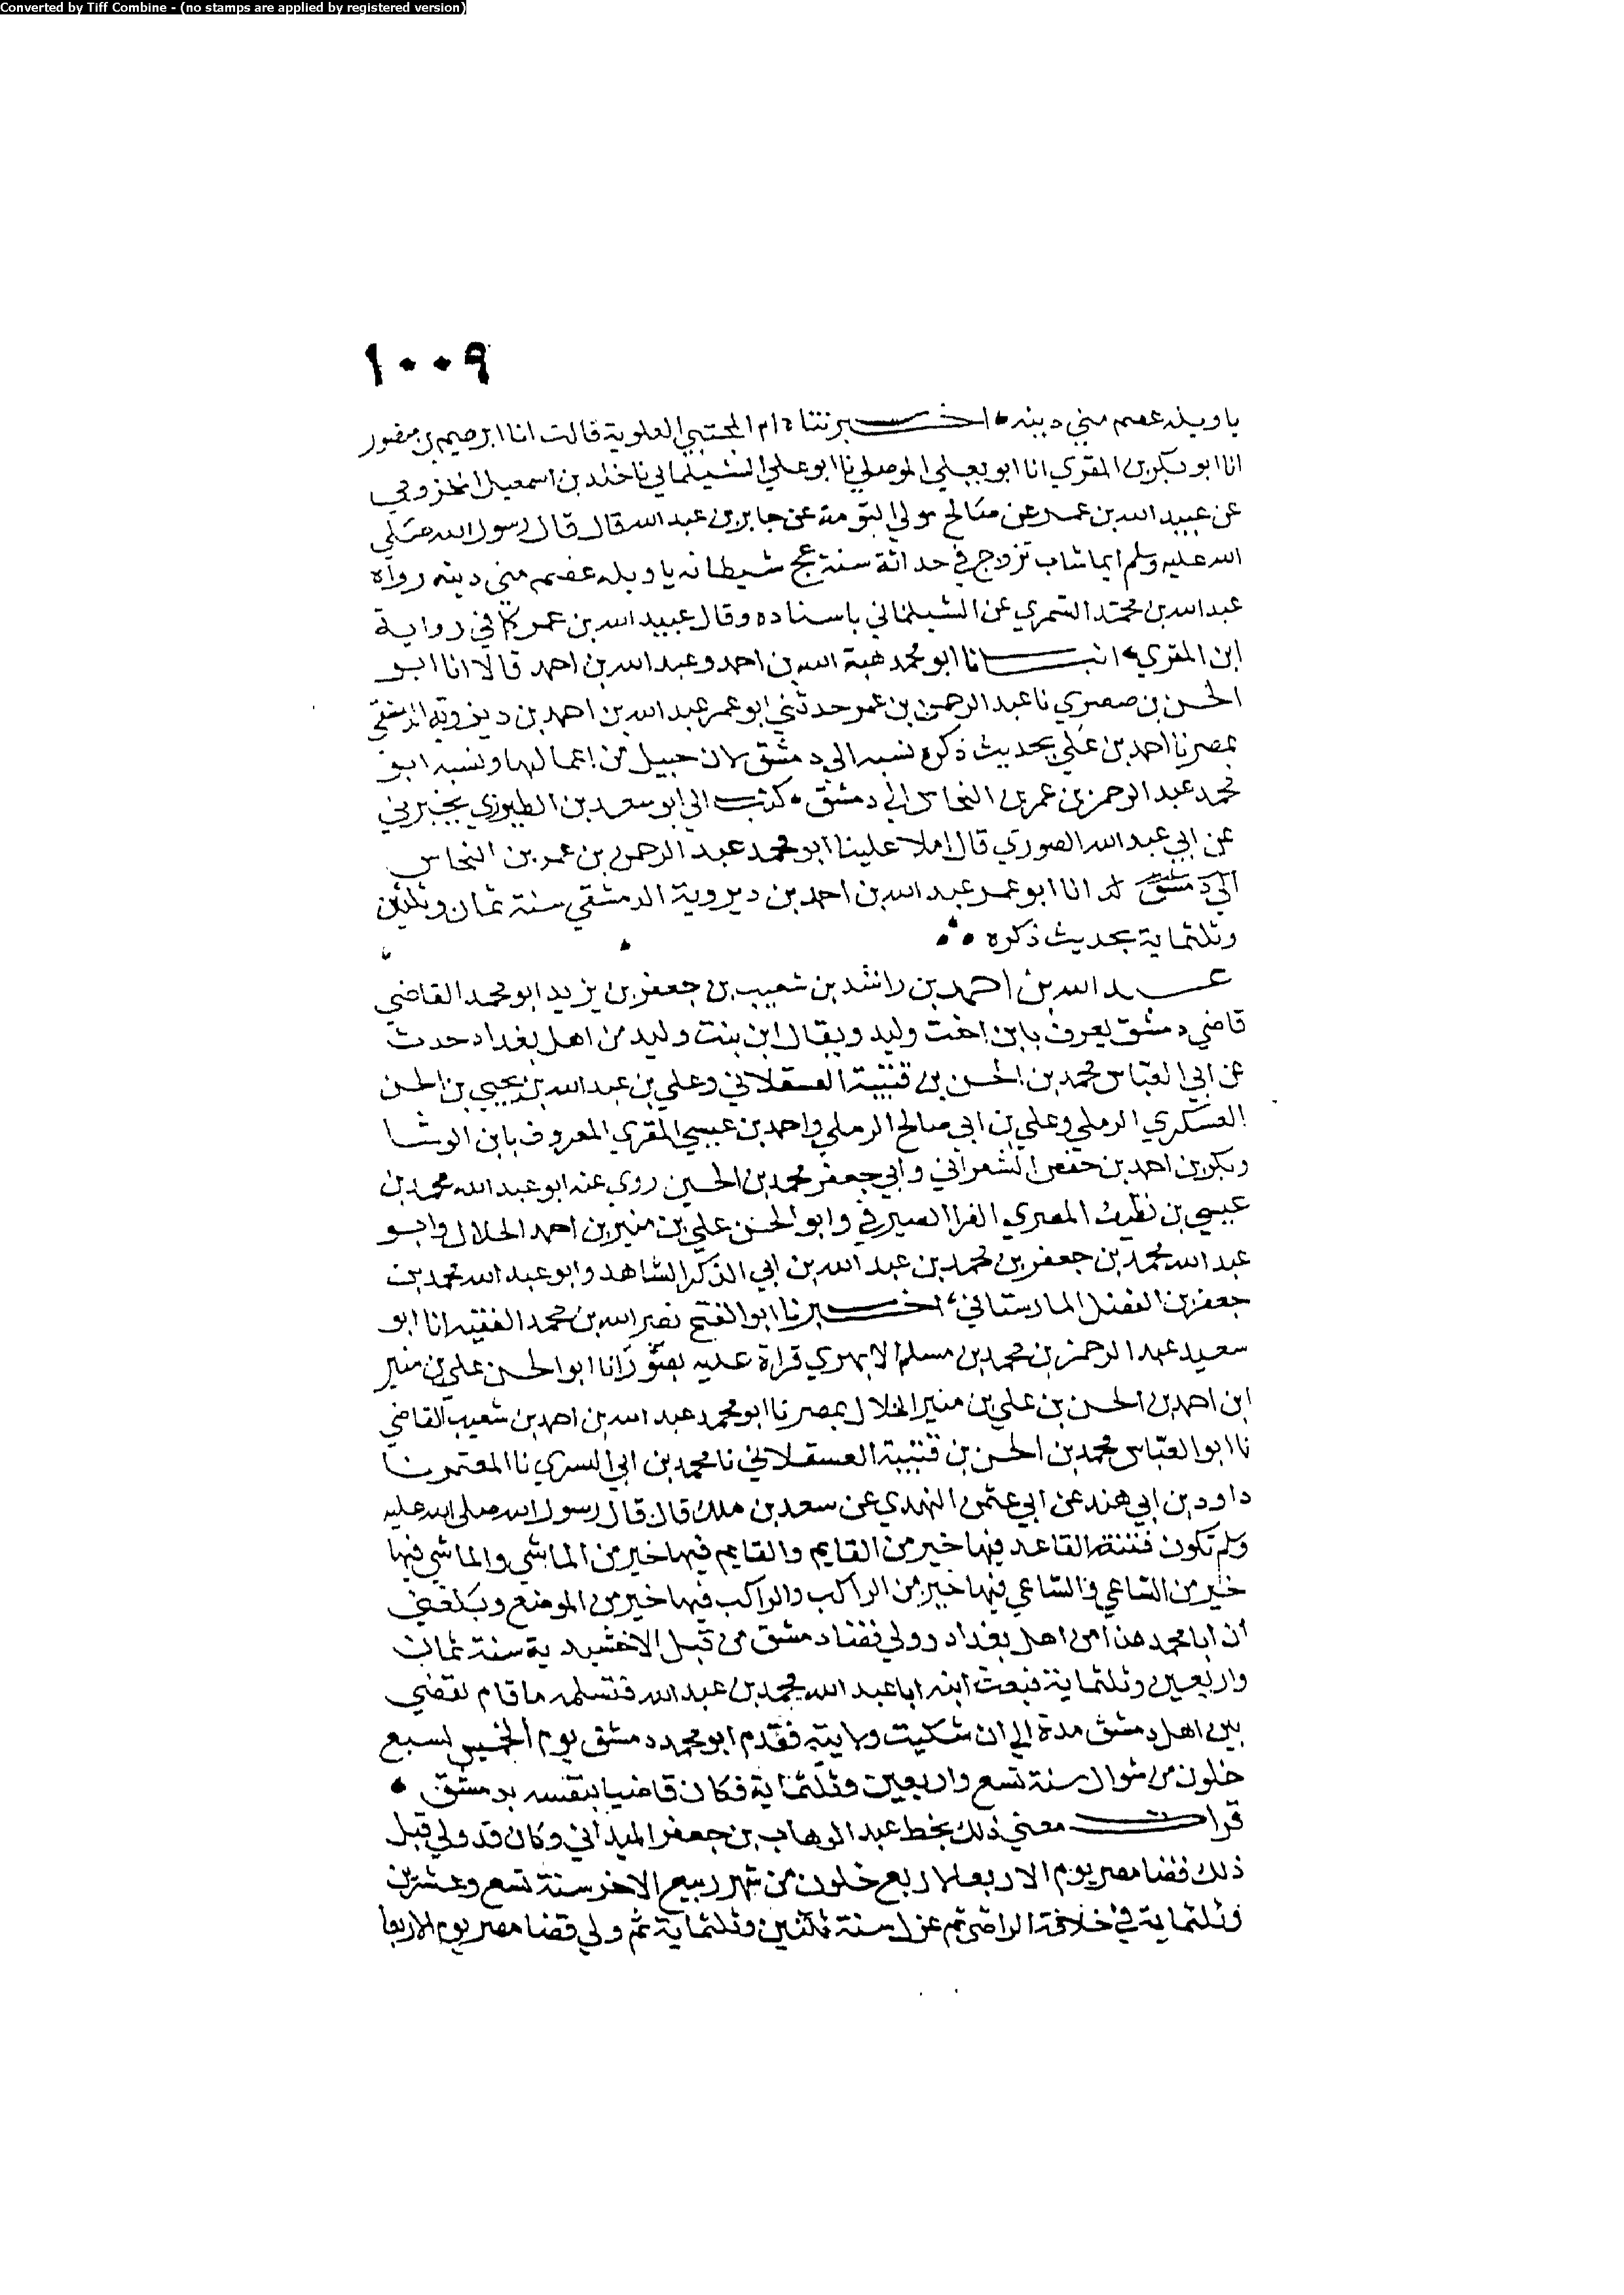 Converted by Tiff Combine - (no stamps are applied by registered version)
١٠٠٩
يا ويله عصم مني دينه • اخبرتنا ام المجتبي العلوية قالت انا ابرهيم بن منصور
انا ابو بكر بن المقري انا ابو يعلي الموصلي نا ابو علي الشيلماني نا خالد بن اسمعيل المخزومي
عن عبيد الله بن عمر عن صالح مولي التومة عن جابر بن عبد الله قال قال رسول الله صلي
الله عليه وسلم ايما شاب تزوج في حداثة سنة عج شيطانه يا ويله عصم مني دينه رواه
عبد الله بن محمد النميري عن الشيلماني باسناده وقال عبيد الله بن عمر كما في رواية
ابن المقري • انبانا ابو محمد هبة الله بن احمد وعبد الله بن احمد قالا انا ابو
الحسن بن صصري نا عبد الرحمن بن عمر حدثني ابو عمر عبد الله بن احمد بن ديزوية الدمشقي
بمصر نا احمد بن علي بحديث ذكره نسبه الي دمشق لان جبيل من اعمالها ونسبه ابو
محمد عبد الرحمن بن عمر بن النحاس الي دمشق • كتب الي ابو سعد بن الطيوري يخبرني
عن ابي عبد الله الصوري قال املا علينا ابو محمد عبد الرحمن بن عمر بن النحاس
انا ابو عمر عبد الله بن احمد بن ديروية الدمشقي سنة ثمان وثلثين
وثلثماية بحديث ذكره
عبد الله بن احمد بن راشد بن شعيب بن جعفر بن يزيد ابو محمد القاضي
قاضي دمشق يعرف بابن اخت وليد ويقال ابن بنت وليد من اهل بغداد حدث
عن ابي العباس محمد بن الحسن بن قتيبة العسقلاني وعلي بن عبد الله بن يحيي بن الحسن
العسكري الرملي وعلي بن ابي صالح الرملي واحمد بن عيسي المقري المعروف بابن الوشا
وبكر بن احمد بن حفص الشعراني وابي جعفر محمد بن الحسين روي عنه ابو عبد الله محمد بن
عيسي بن نظيف المصري الفرا الصيرفي وابو الحسن علي بن منير بن احمد الخلال وابو
عبد الله محمد بن جعفر بن محمد بن عبد الله بن ابي الذكر الشاهد وابو عبد الله محمد بن
جعفر بن الفضل المارستاني • اخبرنا ابو الفتح نصر الله بن محمد الفقيه انا ابو
سعيد عبد الرحمن بن محمد بن مسلم الابهري قراة عليه بصور انا ابو الحسن علي بن منير
ابن احمد بن الحسن بن علي بن منير الخلال بمصر نا ابو محمد عبد الله بن احمد بن شعيب القاضي
نا ابو العباس محمد بن الحسن بن قتيبة العسقلاني نا محمد بن ابي السري نا المعتمر نا
داود بن ابي هند عن ابي عثمن النهدي عن سعد بن ملك قال قال رسول الله صلي الله عليه
وسلم تكون فتنة القاعد فيها خير من القايم والقايم فيها خير من الماشي والماشي فيها
خير من الساعي والساعي فيها خير من الراكب والراكب فيها خير من الموضع وبلغني
ان ابا محمد هذا من اهل بغداد وولي قضا دمشق من قبل الاخشيدية سنة ثمان
واربعين وثلثماية فبعث ابنه ابا عبد الله محمد بن عبد الله فتسلمه ما قام يقضي
بين اهل دمشق مدة الي ان شكيت ولايته فقدم ابو محمد دمشق يوم الخميس لسبع
خلون من شوال سنة تسع واربعين وثلثماية فكان قاضيا بنفسه بدمشق •
قرات معني ذلك بخط عبد الوهاب بن جعفر الميداني وكان قد ولي قبل
ذلك قضا مصر يوم الاربعا لاربع خلون من شهر ربيع الاخر سنة تسع وعشرين
وثلثماية في خلافة الراضي ثم عزل سنة ثلثين وثلثماية ثم ولي قضا مصر يوم الاربعا